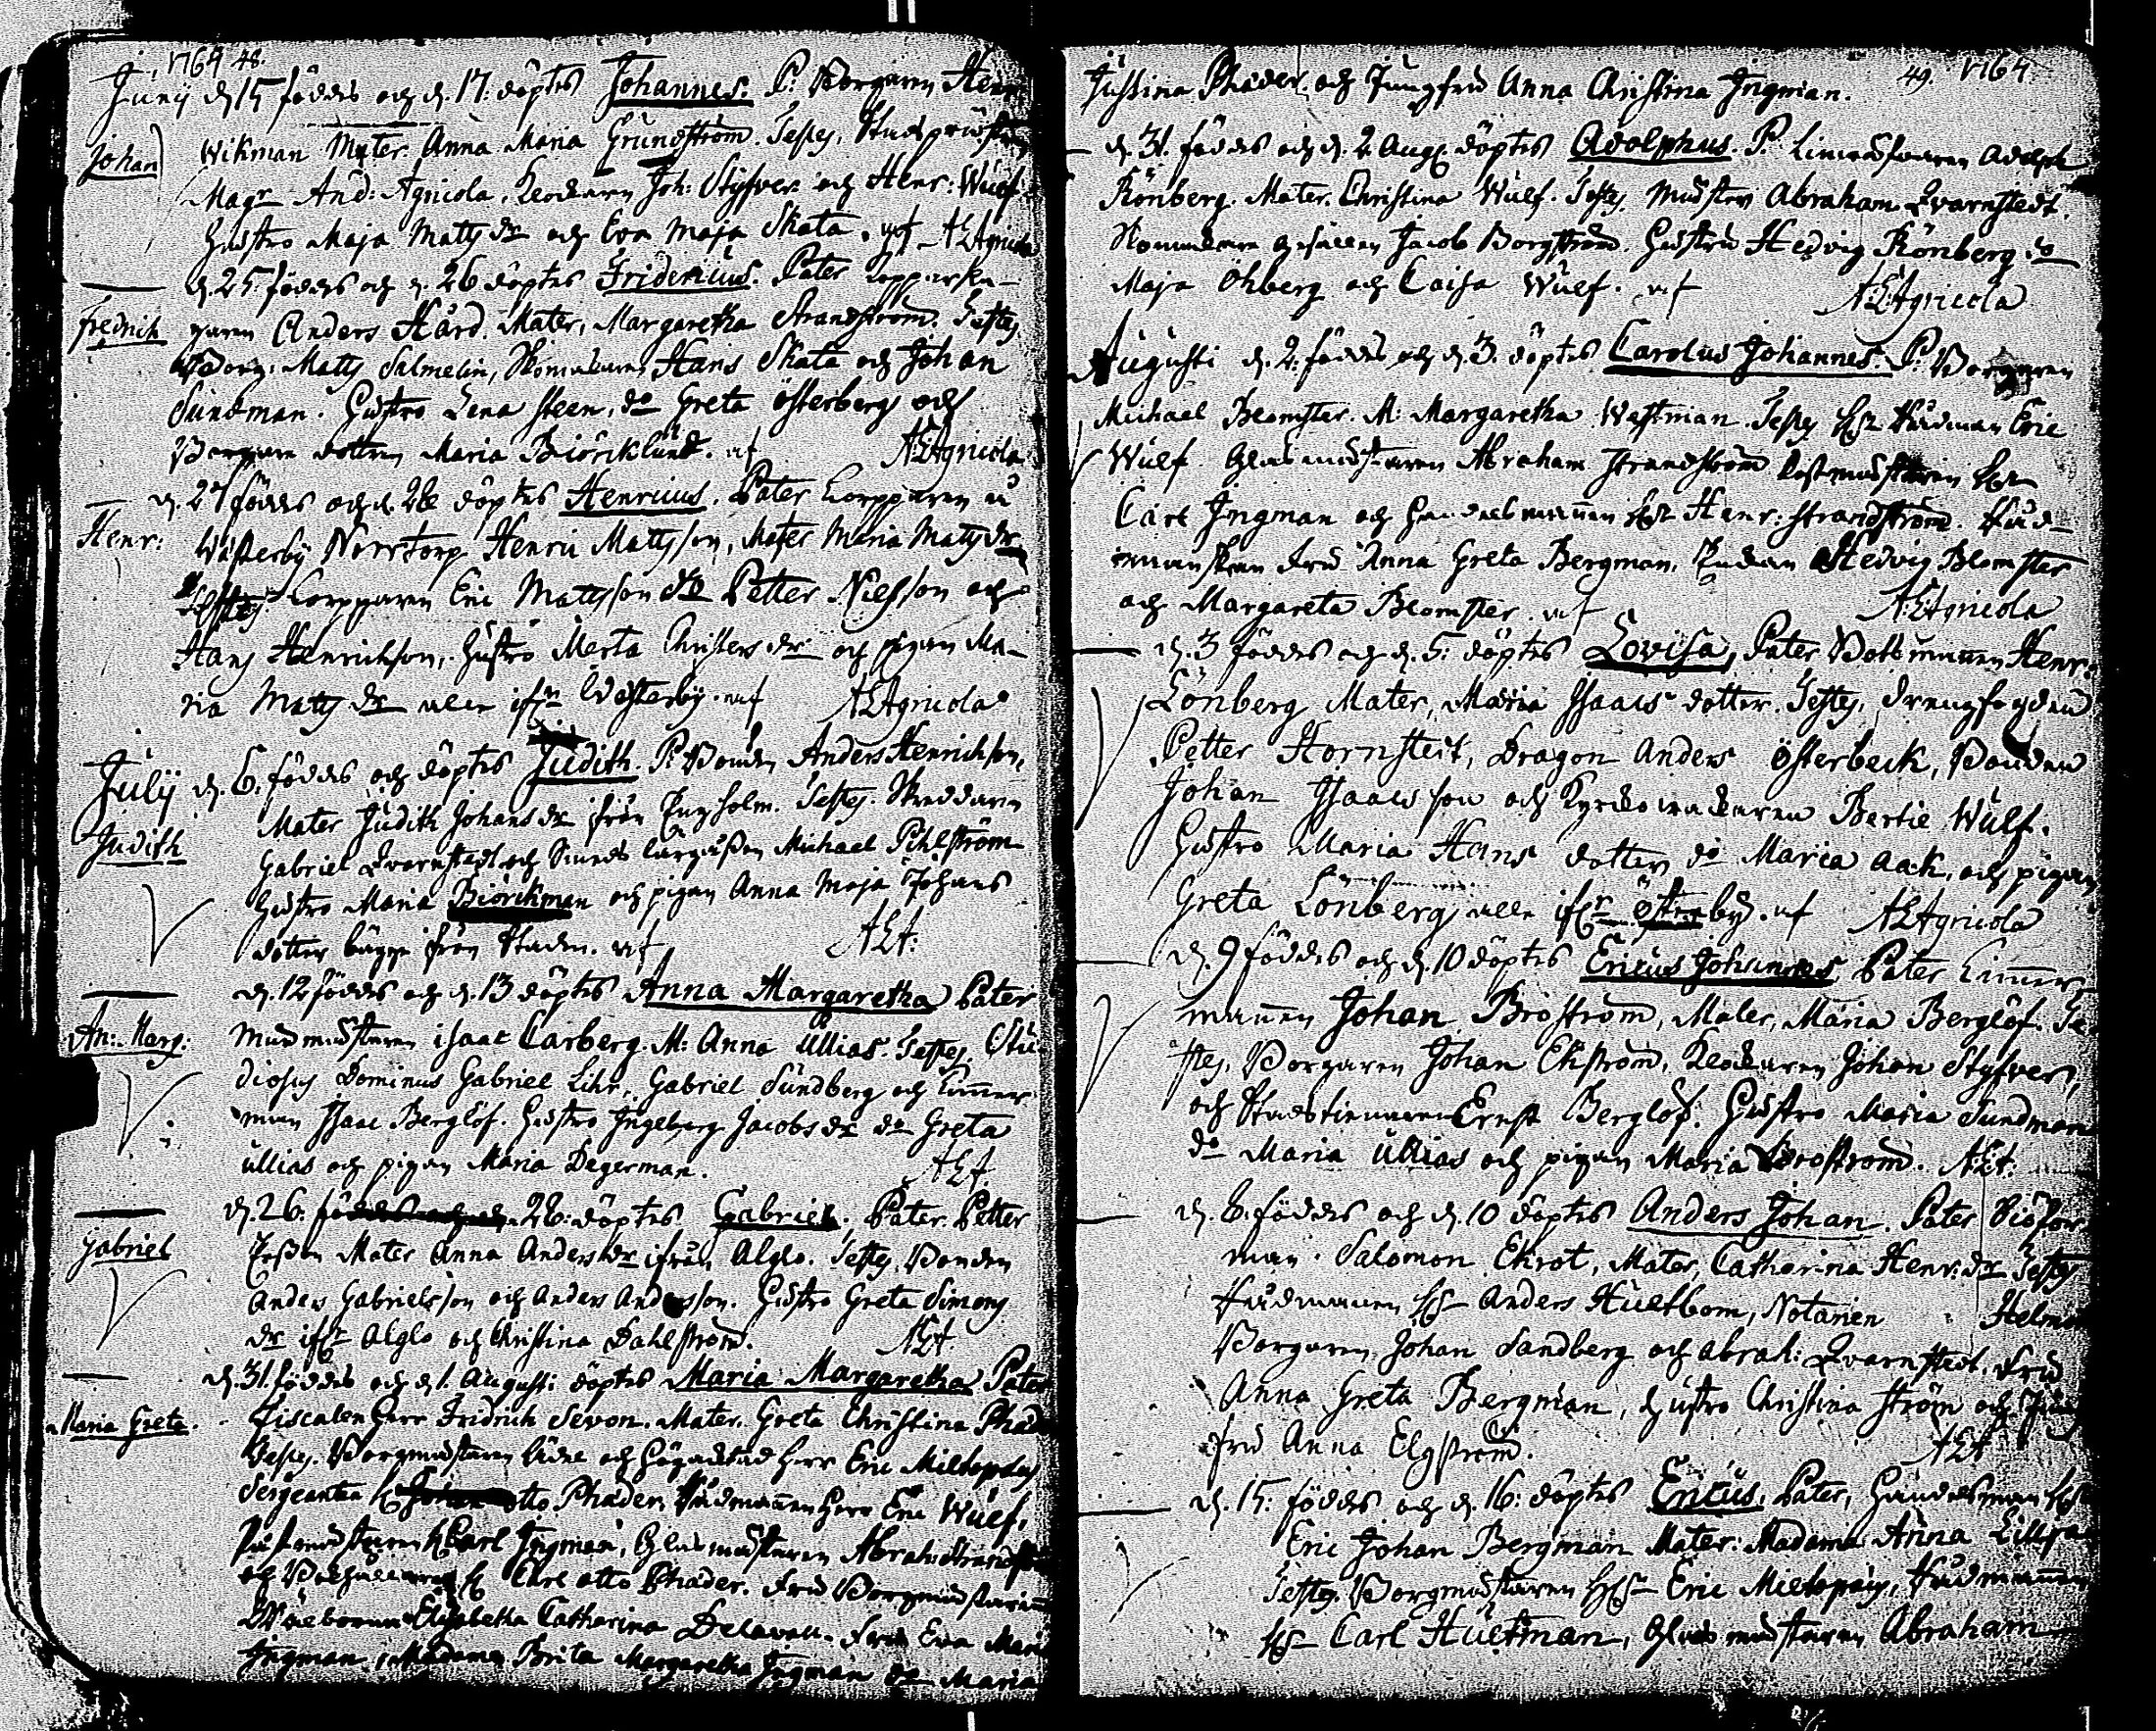 1764 48.
Junij d. 15 föddes och d. 17. döptes Johannes. P. Borgaren Henr.
Johan
Wikman Mater Anna Maria Grundström. Testes,
Magr And: Agricola, Klockaren Joh: Styfver och Henr: Wulf.
Hustro Maja Matts dr och Eva Maja Skata. utf AEAgricola
d. 25. föddes och d. 26 döptes Fridericus. Pater Kopparsla-
Fredrich
garen Anders Hård. Mater, Margaretha Strandström. Testes
Borg: Matts Salmelin, Skomakaren Hans Skata och Johan
Sundman. Hustro Lena Steen, do Greta Österberg och
Borgare dottren Maria Biörklund. utf AEAgricola
d. 27 föddes och d. 28 döptes Henricus. Pater Torpparen
Henr:
Wästerby Norrtorp Henric Mattsson, Mater Maria Matts dr
Testes Torpparen Eric Mattsson do Petter Nilsson och
Hans Henrichson, Hustro Merta Christers dr och pigan Ma-
ria Matts dr alla ifrn Westerby. utf AEAgricola
Julij d. 6. föddes och döptes Judith. P. Bonden Anders Henrichson,
Judith
Mater Judith Johans dr från Testes. Skreddaren
Gabriel Qvarnstedt och Michael Pihlström
Hustro Maria Biörckman och pigan Anna Maja Johans
dotter bägge från Staden. utf AEA.
d. 12 föddes och d. 13 döptes Anna Margaretha Pater
An: Marg:
murmästaren Isaac Carberg. M: Anna Ullias. Testes. Stu-
diosus Dominus Gabriel Lihr, Gabriel Sundberg och Timmer
man Isaac Berglöf. Hustro Ingeborg Jacobs dr do Greta
Ullias och pigan Maria Degerman. AEA.
d. 26. föddes och d. 28. döptes Gabriel. Pater Petter
Gabriel
Mater Anna Anders dr ifrån Alglo. Testes, Bonden
Anders Gabrielsson och Anders Andersson. Hustro Greta Simons
dr ifrn Alglo och Christina Dahlström. AEA.
d. 31. föddes och d. 1. Augusti döptes Maria Margaretha Pater
Maria Greta.
Fiscalen Herr Fridrich Sevon. Mater. Greta Christina Phader
Testes. Borgmästaren Herr Eric Miltopæus
Sergeanten Otto Phader, Rådmannen Herr Eric Wulf,
Carl Ingman, Glasmästaren Abrah: Strandström
och Carl Otto Phader. Fru Borgmästarinnan
Elisabetha Catharina Delavall. Fru Eva Maria
Ingman, Madame Brita Margaretha Ingman do Maria
49. 1764
Justina Phader. och Jungfru Anna Christina Ingman.
d. 31. föddes och d. 2. Aug. döptes Adolphus. P. Adolph
Rönberg. Mater. Christina Wulf. Testes, Abraham Qvarnstedt,
Skomakare gesällen Jacob Borgström. Hustru Hedvig Rönberg do
Maja Öhberg och Caisa Wulf. utf AEAgricola
Augusti d. 2. föddes och d. 3. döptes Carolus Johannes. P. Borgaren
Michael Blomster. M: Margaretha Wastman. Testes Rådman Eric
Wulf. Glasmästaren Abraham Strandström Postmästaren
Carl Ingman och Handelsmannen Henr: Strandström. Råd-
manskan Fru Anna Greta Bergman, Hedvig Blomster
och Margareta Blomster. utf AEAgricola
d. 3 föddes och d. 5. döptes Lovisa, Pater Båtsmannen Henr:
Lönberg Mater, Maria Isaacs dotter. Testes, drengfogden
Petter Hornsteit, Dragon Anders Österbeck, Bonden
Johan Isaacsson och Bertil Wulf.
Hustro Maria Hans dotter do Maria Aack, och pigan
Greta Lönberg alla ifrn Österby. utf AEAgricola
d. 9 föddes och d. 10 döptes Ericus Johannes Pater Timmer
mannen Johan Broström, Mater, Maria Berglöf. Te-
stes, Borgaren Johan Ekström, Klockaren Johan Styfver,
och Ernst Berglöf. Hustro Maria Sundman
do Maria Ullias och pigan Maria Broström. AEA.
d. 8. föddes och d. 10 döptes Anders Johan. Pater
man. Salomon Ekrot, Mater, Catharina Henr: dr Testes
Rådmannen Anders Hultbom, Notarien Helman
Borgaren Johan Sandberg och Abrah: Qvarnstedt. Fru
Anna Greta Bergman, Hustro Christina Ström och Jung-
fru Anna Elgström. AEA
d. 15. föddes och d. 16. döptes Ericus, Pater, Handelsman
Eric Johan Bergman Mater: Madame Anna
Testes. Borgmästaren Eric Miltopæus, Rådmannen
Carl Hultman, Glasmästaren Abraham